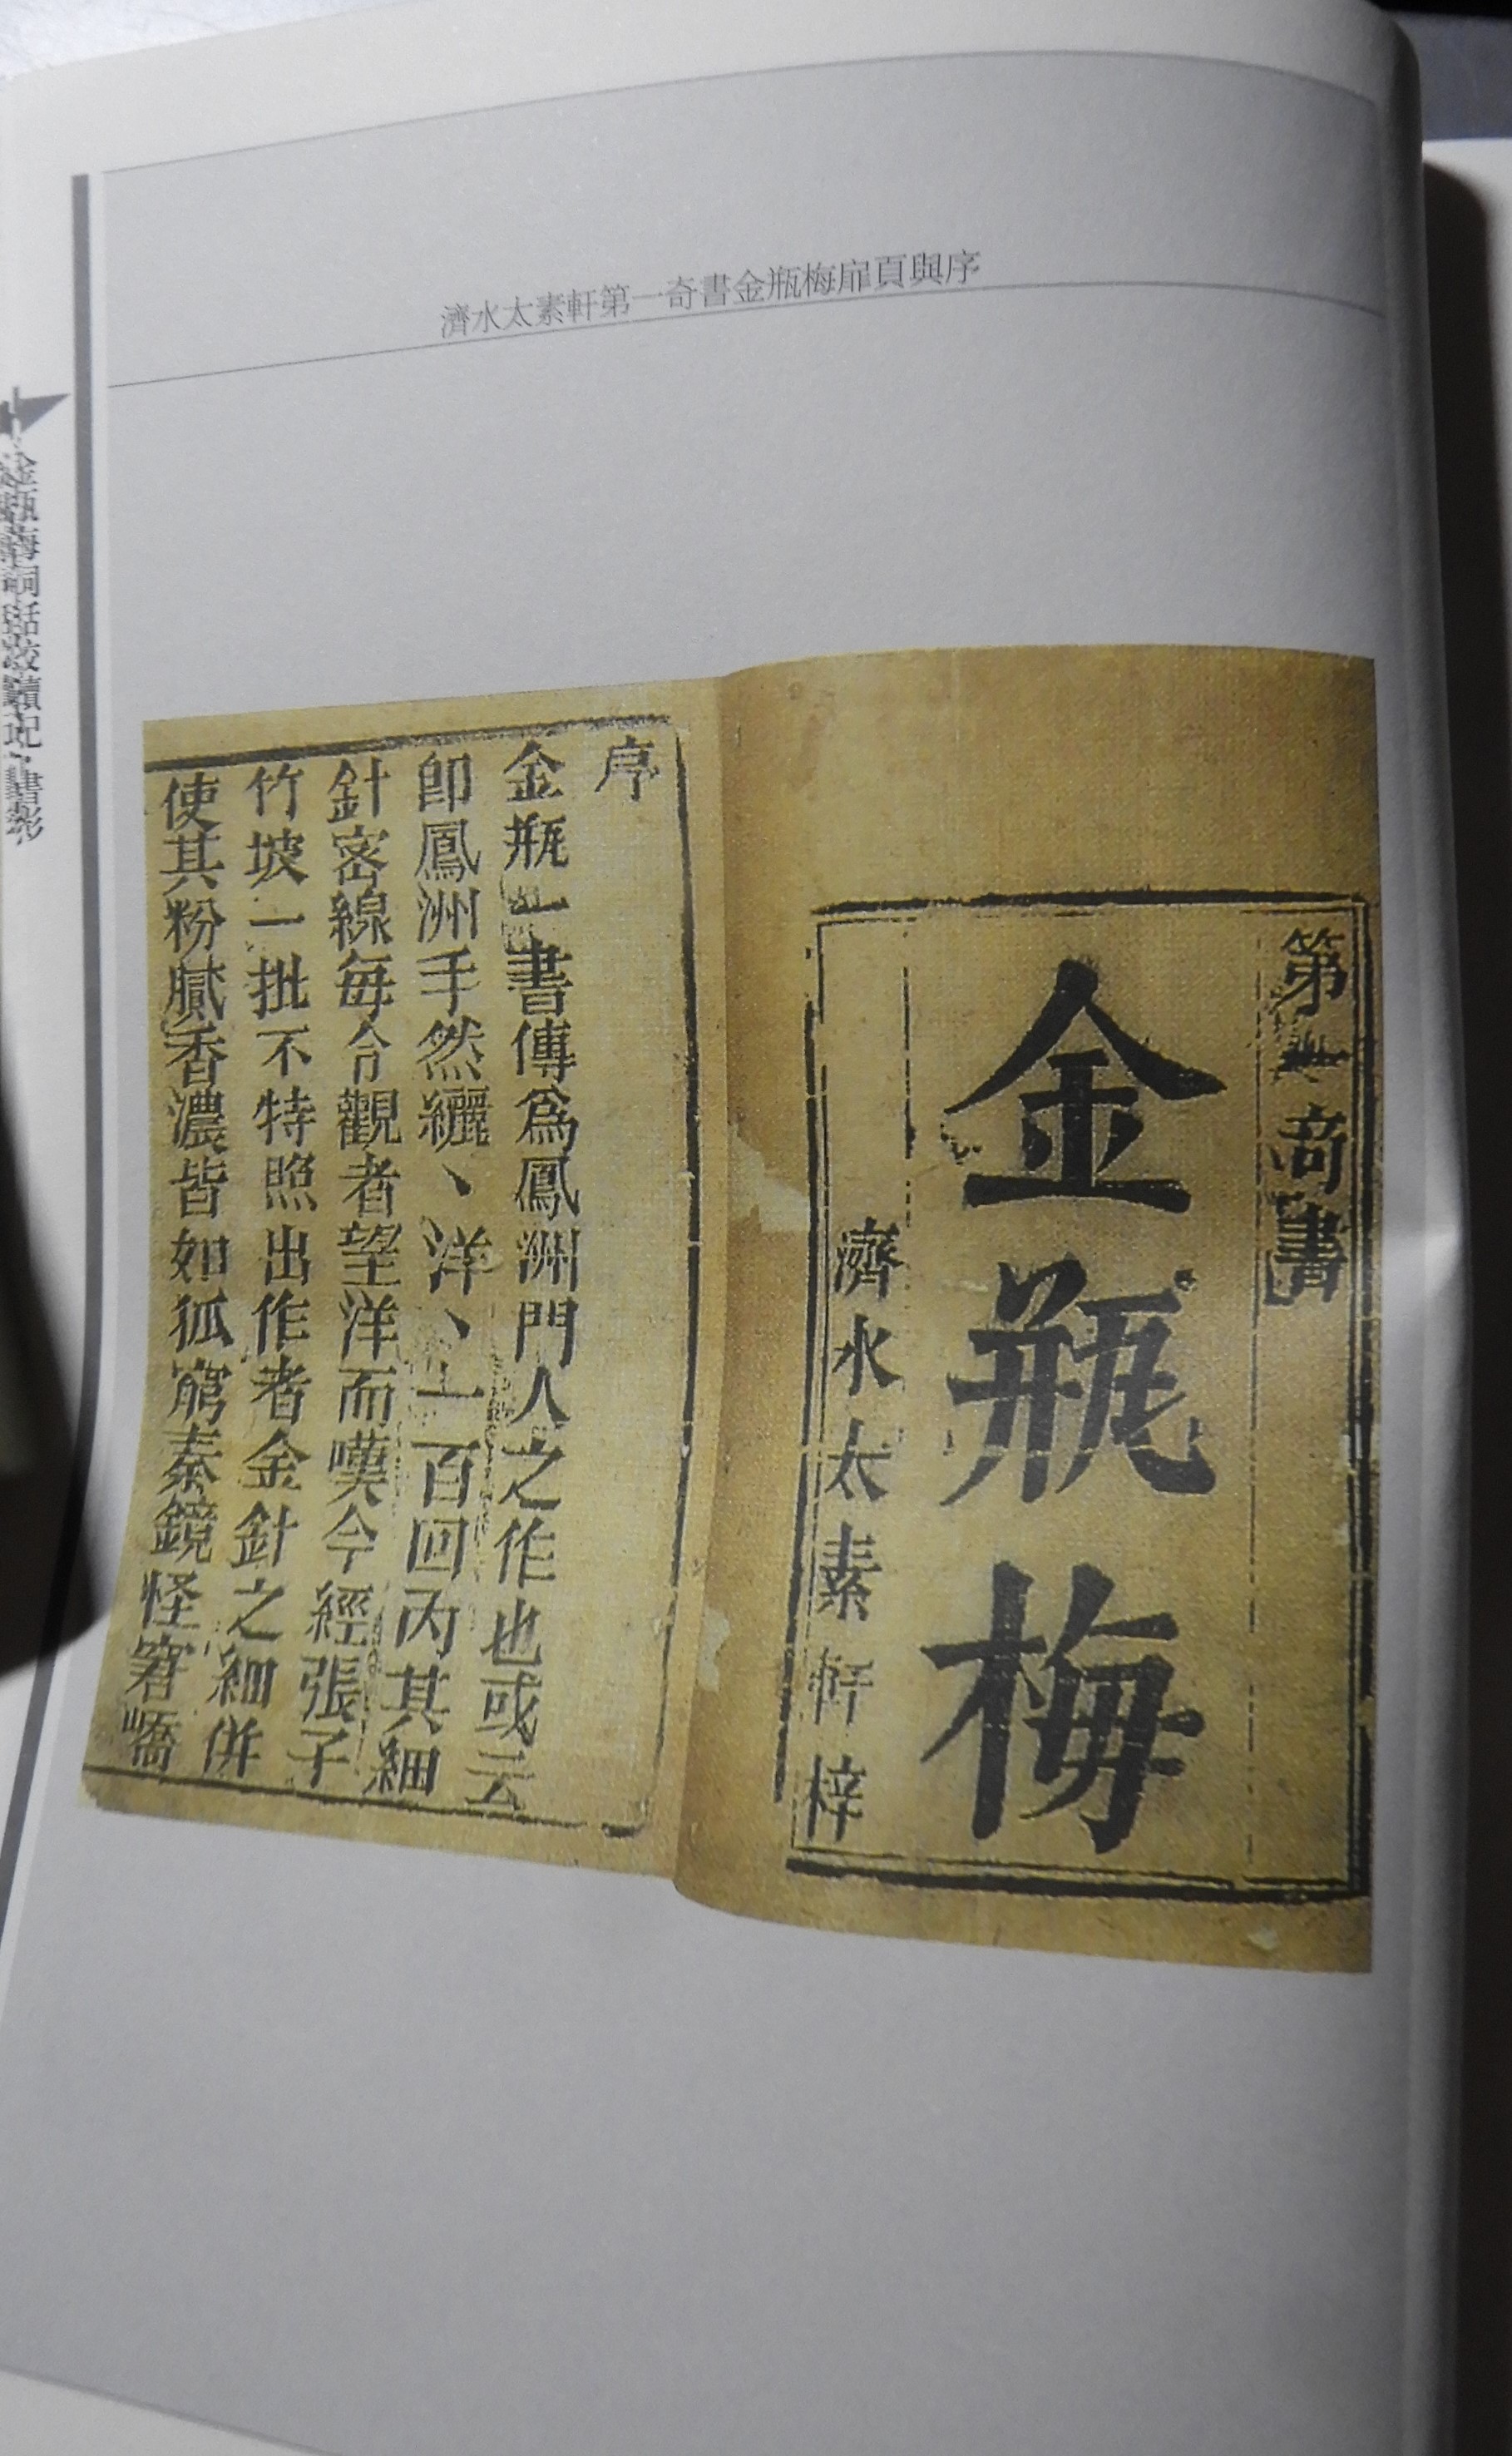 濟水太素軒第一奇書金瓶梅扉頁與序
第一奇書
金瓶梅
濟水太素軒梓
序
金瓶一書傳爲鳳洲門人之作也或云
卽鳳洲手然纚丶洋丶一百回内其細
針密線每令觀者望洋而嘆今經張子
竹坡一批不特照出作者金針之細併
使其粉膩香濃皆如狐窮秦鏡怪窘嶠
金瓶梅詞話校讀記·書影